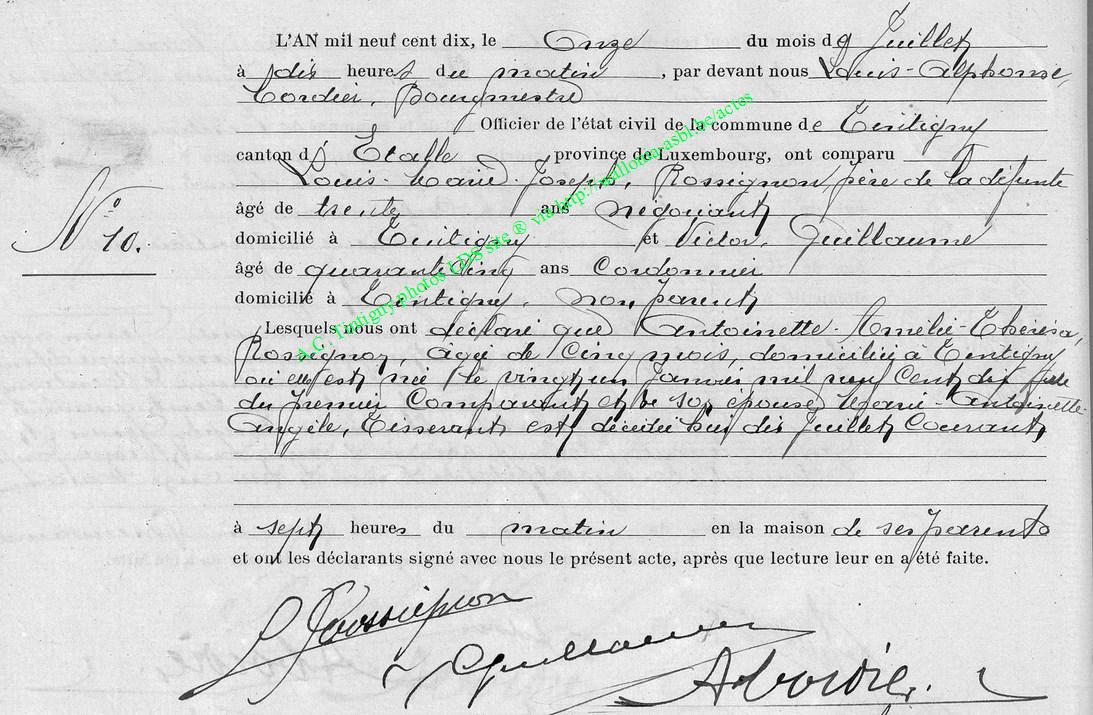 L'AN mil neuf cent dix, le Onze du mois de Juillet
à dix heures du matin, par devant nous Louis-Alphonse,
Cordier, Bourgmestre
Officier de l'état civil de la commune de Tintigny
canton d'Etalle province de Luxembourg, ont comparu
Louis-Marie-Joseph, Rossignon, père de la défunte
âgé de trente ans négociant
domicilié à Tintigny et Victor, Guillaume
N° 10.
âgé de quarante cinq ans Cordonnier
domicilié à Tintigny, non parent
Lesquels nous ont déclaré que Antoinette-Amélie-Thérèsa,
Rossignon, âgée de cinq mois, domiciliée à Tintigny
où elle est née le vingt un Janvier mil neuf cent dix fille
du premier Comparant et de son épouse Marie-Antoinette-
Angèle, Tisserant est décédée hier dix Juillet Courant,
à sept heures du matin en la maison de ses parents
et ont les déclarants signé avec nous le présent acte, après que lecture leur en a été faite.
L Rossignon
V Guillaume
A Cordier.
A.C. Tintigny photos LDS site ® via http://wallonia-asbl.be/actes